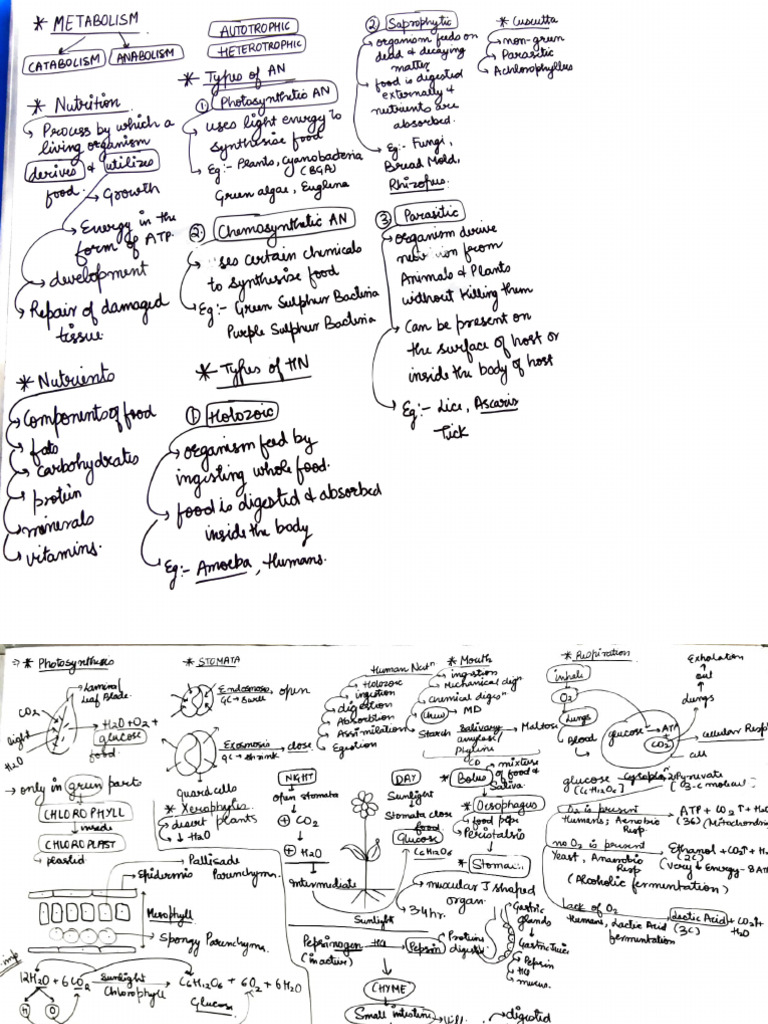 * METABOLISM
CATABOLISM
ANABOLISM
* Nutrition
Process by which a
living organism
derives & utilizes
food.
Growth
Energy in the
form of ATP.
development
Repair of damaged
tissue.
* Nutrients
Components of food
fats
carbohydrates
protein
minerals
vitamins.
AUTOTROPHIC
HETEROTROPHIC
* Types of AN
① Photosynthetic AN
uses light energy to
synthesise food
Eg:- Plants, cyanobacteria
(BGA)
Green algae, Euglena
2. Chemosynthetic AN
ses certain chemicals
to synthesize food
Eg:- Green Sulphur Bacteria
Purple Sulphur Bacteria
* Types of HN
① Holozoic
organism feed by
ingesting whole food.
food is digested & absorbed
inside the body
Eg:- Amoeba, Humans.
② Saprophytic
organism feeds on
dead & decaying
matter
food is digested
externally &
nutrients are
absorbed.
Eg:- Fungi,
Bread Mold,
Rhizopus.
* Cuscutta
non-green
Parasitic
Achlorophylles
③ Parasitic
organism derive
from
Animals & Plants
without killing them
Can be present on
the surface of host or
inside the body of host
Eg:- Lice, Ascaris
Tick
* Photosynthesis
Lamina/
Leaf Blade.
CO2
light
H2O
H2O + O2 +
glucose
food.
only in green parts
CHLOROPHYLL
inside
CHLOROPLAST
plastid
Pallisade
Parenchym.
Epidermis
Mesophyll
Spongy Parenchym.
imp
12H2O + 6CO2 Sunlight C6H12O6 + 6O2 + 6H2O
Chlorophyll
Glucose
H
O
* STOMATA
Endosmose open
GC → Swell
Exosmosis close
GC → shrink
Guard cells
* Xerophytes
desert plants
↓↓ H2O
NIGHT
open stomata
CO2
H2O
Intermediate
DAY
Sunlight
Stomata close
food
Glucose
C6H12O6
3-4 hr.
Sunlight
Human Nutn
Holozoic
ingestion
digestion
Absorption
Assimilation
Egestion
* Mouth
ingestion
Mechanical dign
chemical digesn
Chew → MD
Starch Salivary Maltose
amylase/
Ptyline
mixture
of food &
Saliva
* Bolus
* Oesophagus
food pipe
Peristalsis
* Stomac
muscular J shaped
organ.
Gastric
glands
Gastric Juice
Pepsin
HCl
mucus.
Pepsinogen HCl Pepsin Proteins
(inactive)
digest
CHYME
Small intestine
digested
* Respiration
inhale
O2
Lungs
Blood
glucose → ATP
CO2
cell
Exhalation
out
lungs
cellular Resp
glucose cytoplas 2 Pyruvate
(C6H12O6)
(3-C molecu
O2 is present
Humans; Aerobic
Resp
ATP + CO2↑ + H
(36)
(Mitochondri
no O2 is present
Yeast, Anaerobic
Resp
Ethanol + CO2↑ + H
(2C)
(Very ↓ Energy - 2 AT
(Alcoholic fermentation)
Lack of O2
Humans, Lactic Acid
fermentation
Lactic Acid + CO2↑ +
(3C)
H2O